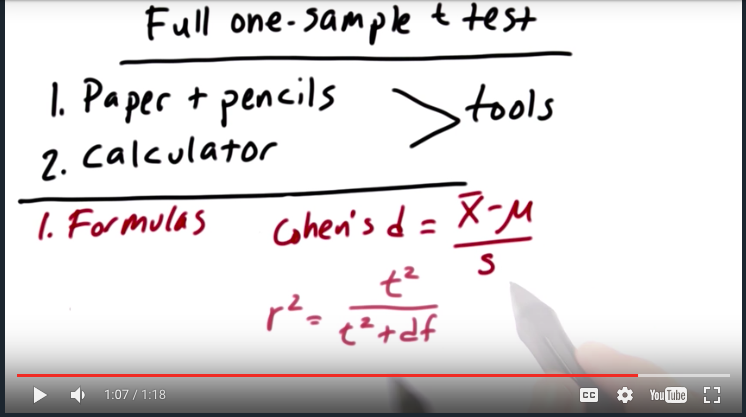 Full one-sample t test
1. Paper + pencils
2. calculator
> tools
1. Formulas
Cohen's d = x̄-μ
s
r² = t²
t²+df
1:07 / 1:18
CC
YouTube